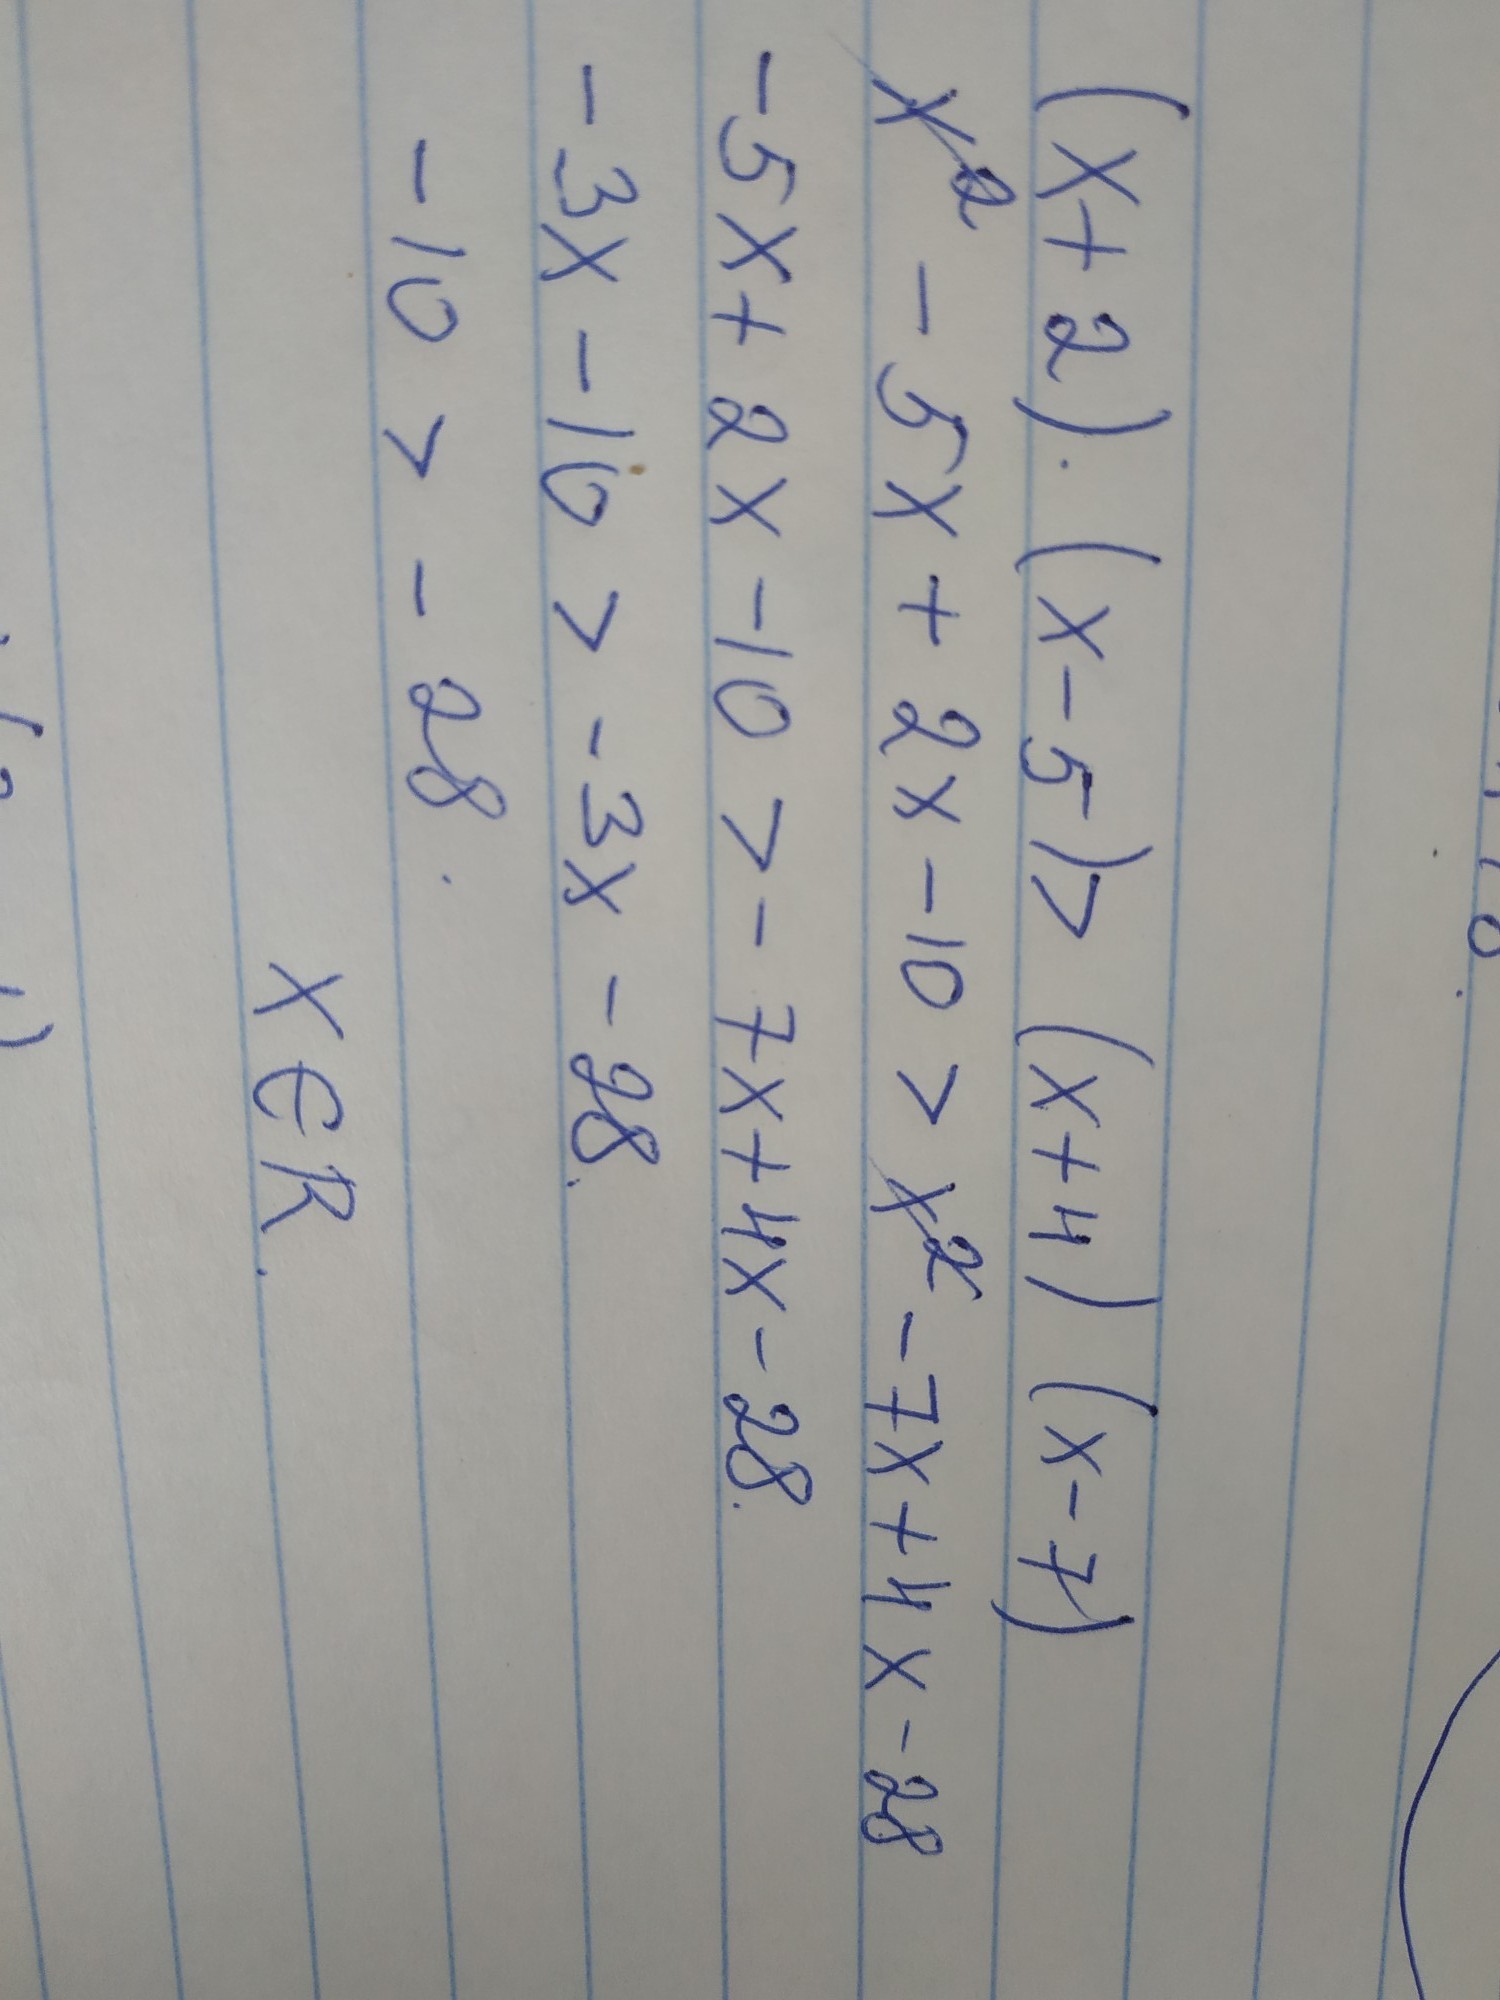 (x+2).(x-5)> (x+4) (x-7)
x² - 5x + 2x - 10 > x² - 7x + 4x - 28
- 5x + 2x - 10 > - 7x + 4x - 28.
- 3x - 10 > - 3x - 28.
- 10 > - 28.
x ∈ R.